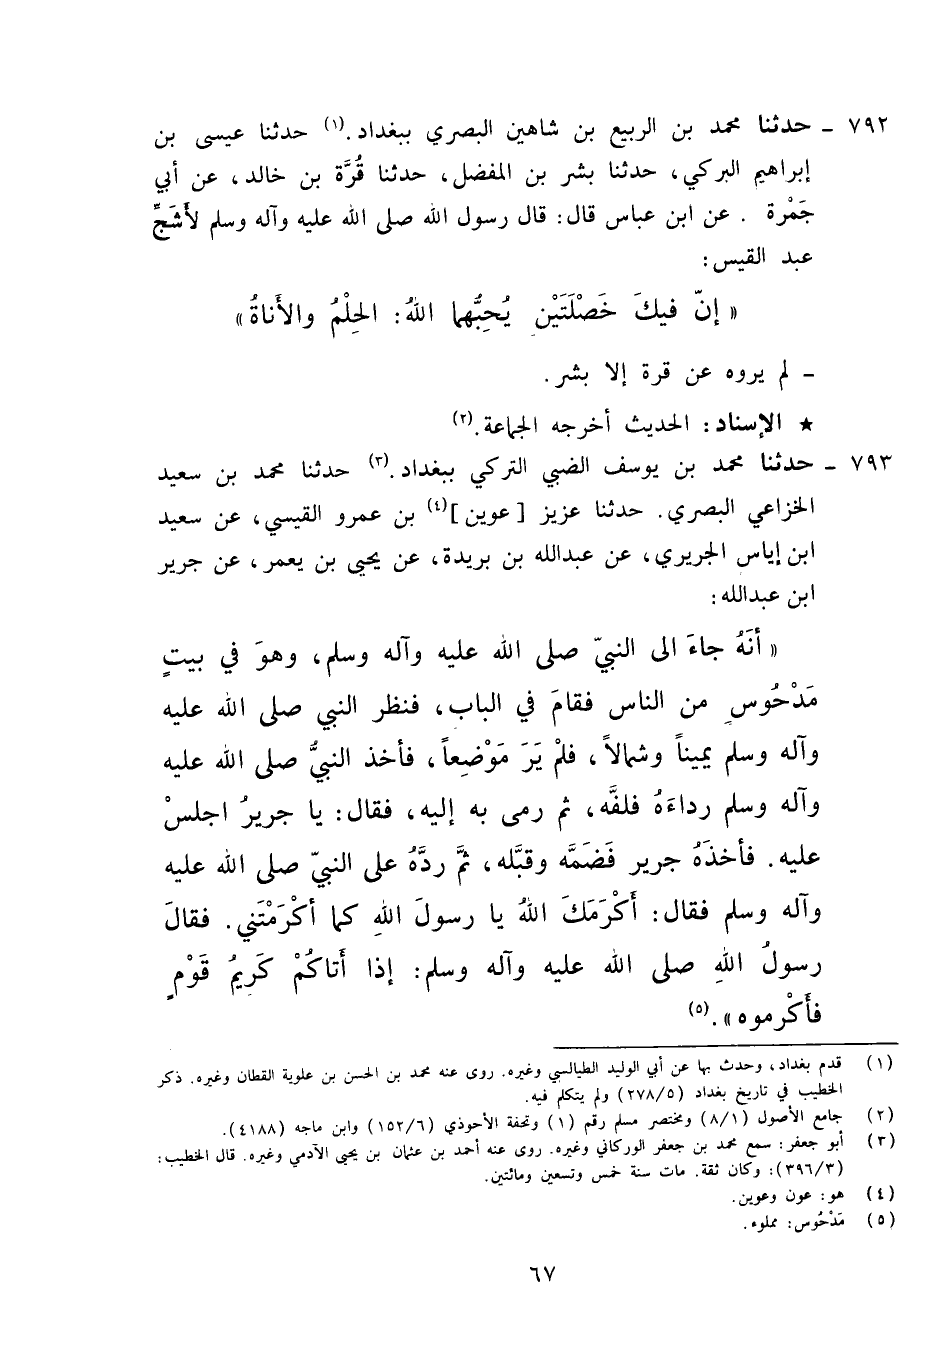 ٧٩٢ ـ حدثنا محمد بن الربيع بن شاهين البصري ببغداد.(١) حدثنا عيسى بن
إبراهيم البركي، حدثنا بشر بن المفضل، حدثنا قُرَّة بن خالد، عن أبي
جَمْرة . عن ابن عباس قال: قال رسول الله صلى الله عليه وآله وسلم لأَشَجِّ
عبد القيس:
« إنّ فيكَ خَصْلَتَيْنِ يُحِبُّهما اللهُ: الحِلْمُ والأَناةُ »
ـ لم يروه عن قرة إلا بشر.
★ الإسناد: الحديث أخرجه الجماعة.(٢)
٧٩٣ ـ حدثنا محمد بن يوسف الضبي التركي ببغداد.(٣) حدثنا محمد بن سعيد
الخزاعي البصري. حدثنا عزيز [عوين](٤) بن عمرو القيسي، عن سعيد
ابن إياس الجريري، عن عبدالله بن بريدة، عن يحيى بن يعمر، عن جرير
ابن عبدالله:
« أنَهُ جاءَ الى النبيّ صلى الله عليه وآله وسلم، وهوَ في بيتٍ
مَدْحُوسٍ من الناس فقامَ في الباب، فنظر النبي صلى الله عليه
وآله وسلم يميناً وشمالاً، فلمْ يَرَ مَوْضِعاً، فأخذ النبيُّ صلى الله عليه
وآله وسلم رداءَهُ فلفَّه، ثم رمى به إليه، فقال: يا جريرُ اجلسْ
عليه. فأخذَهُ جرير فَضَمَّه وقبَّله، ثمَّ ردَّهُ على النبيّ صلى الله عليه
وآله وسلم فقال: أَكْرَمَكَ اللهُ يا رسولَ اللهِ كما أكْرَمْتَني. فقالَ
رسولُ اللهِ صلى الله عليه وآله وسلم: إذا أَتاكُمْ كَرِيمُ قَوْمٍ
فأَكْرموه».(٥)
(١) قدم بغداد، وحدث بها عن أبي الوليد الطيالسي وغيره. روى عنه محمد بن الحسن بن علوية القطان وغيره. ذكر
الخطيب في تاريخ بغداد (٢٧٨/٥) ولم يتكلم فيه.
(٢) جامع الأصول (٨/١) ومختصر مسلم رقم (١) وتحفة الأحوذي (١٥٢/٦) وابن ماجه (٤١٨٨).
(٣) أبو جعفر: سمع محمد بن جعفر الوركاني وغيره. روى عنه أحمد بن عثمان بن يحيى الآدمي وغيره. قال الخطيب:
(٣٩٦/٣): وكان ثقة. مات سنة خمس وتسعين ومائتين.
(٤) هو: عون وعوين.
(٥) مَدْحُوس: مملوء.
٦٧